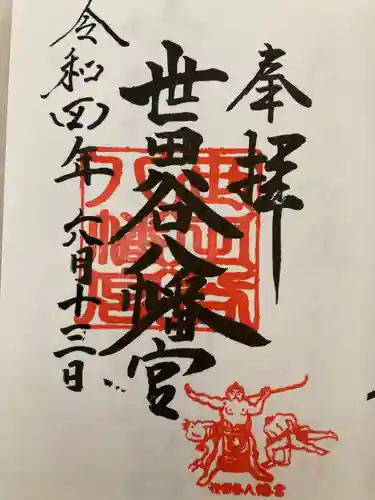 奉拝
世田谷八幡宮
令和四年六月十三日
世田谷八幡宮